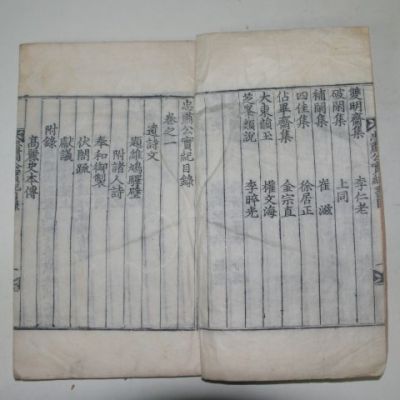 雙明齋集 李仁老
破閑集 上同
補閑集 崔滋
四佳集 徐居正
佔畢齋集 金宗直
大東韻玉 權文海
芝峯類說 李睟光
忠肅公實紀目錄
卷之一
遺詩文
題雌鳩驛壁
附諸人詩
奉和御製
伏閤䟽
獻議
附錄
高麗史本傳